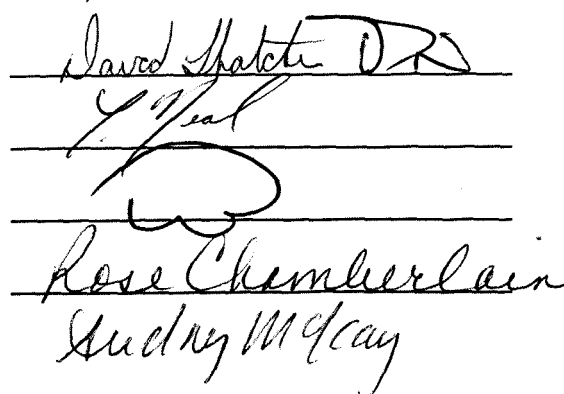 David Thatcher
Y. Neal
Rose Chamberlain
Audrey McKay